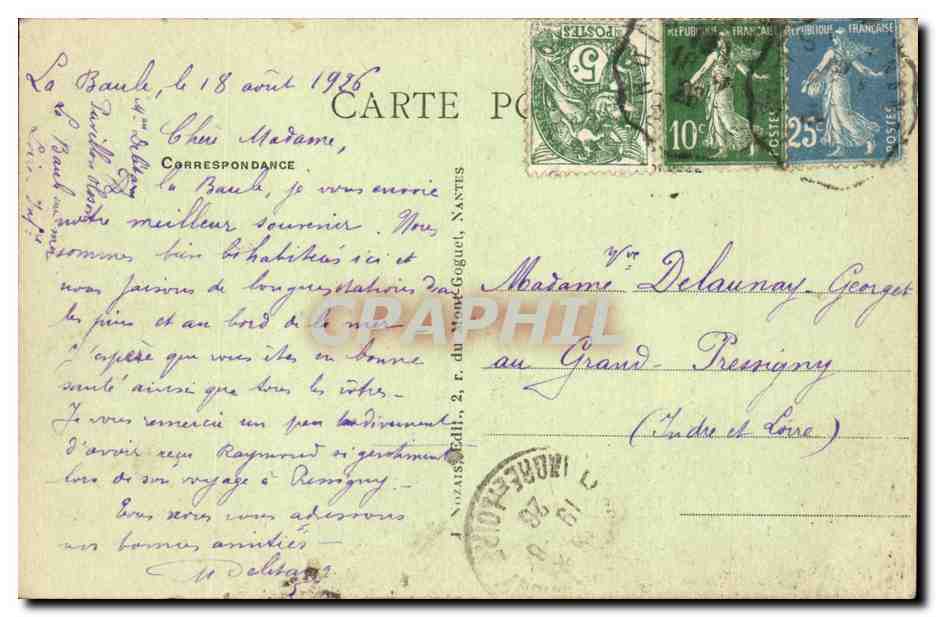 La Baule, le 18 août 1926
CARTE PO
Chère Madame,
CORRESPONDANCE
La Baule, je vous envoie
notre meilleur souvenir. Nous
sommes bien ici et
nous faisons de longues stations dans
les pins et au bord de la mer
J'espère que vous êtes en bonne
santé ainsi que tous les vôtres -
Je vous remercie un peu tardivement
d'avoir reçu Raymond si gentiment
lors de son voyage à Pressigny -
Tous nous vous adressons
nos bonnes amitiés -
Mme
Pavillon
La Baule sur mer
Loire Infre
J NOZAIS, Edit., 2, r. du Mont-Goguet, NANTES
POSTES
5c
REPUBLIQUE FRANÇAISE
10c
REPUBLIQUE FRANÇAISE
25c
POSTES
Madame Vve Delaunay-Georget
au Grand-Pressigny
(Indre et Loire)
INDRE ET LOIRE
19
26
CPAPHIL